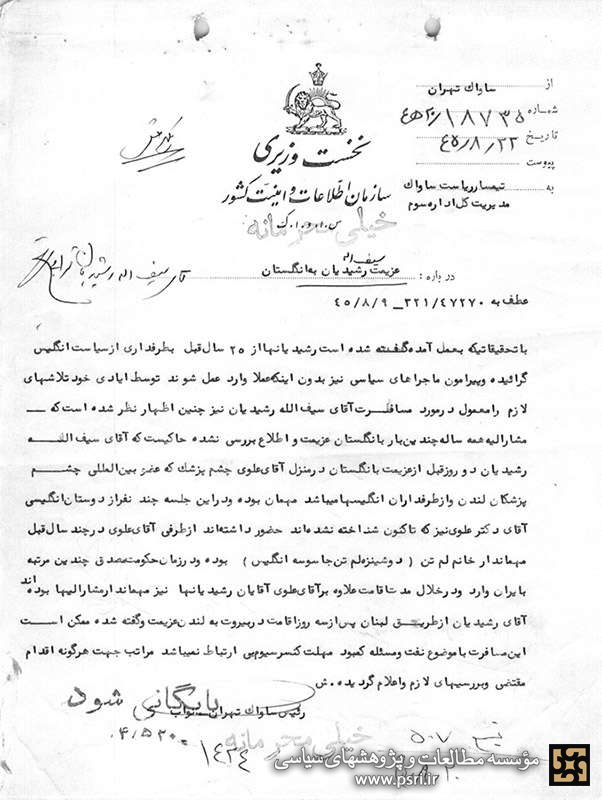 از ساواك تهران
شماره ۱۸۷۳۵/۲۰ه‍۴
تاریخ ۴۵/۸/۲۲
پیوست
به تیمسار ریاست ساواك
مدیریت كل اداره سوم
نخست وزیری
سازمان اطلاعات و امنیت کشور
س.ا.و.ا.ك
خیلی محرمانه
در باره : عزیمت سیف اله رشیدیان به انگلستان
عطف به ۳۲۱/۴۷۲۷۰ _ ۴۵/۸/۹
با تحقیقاتیكه بعمل آمده گفته شده است رشیدیانها از ۲۵ سال قبل بطرفداری از سیاست انگلیس
گرائیده و پیرامون ماجراهای سیاسی نیز بدون اینكه عملا وارد عمل شوند توسط ایادی خود تلاشهای
لازم را معمول در مورد مسافرت آقای سیف الله رشیدیان نیز چنین اظهار نظر شده است كه _
مشارالیه همه ساله چندین بار بانگلستان عزیمت و اطلاع بررسی نشده حاكیست كه آقای سیف الله
رشیدیان دو روز قبل از عزیمت بانگلستان در منزل آقای علوی چشم پزشك كه عضو بین المللی چشم
پزشكان لندن و از طرفداران انگلیسها میباشد مهمان بوده و در این جلسه چند نفر از دوستان انگلیسی
آقای دكتر علوی نیز كه تاكنون شناخته نشده اند حضور داشته اند از طرفی آقای علوی در چند سال قبل
مهماندار خانم لم تن ( دوشیزه لم تن جاسوسه انگلیس ) بوده و در زمان حكومت مصدق چندین مرتبه
بایران وارد و در خلال مدت اقامت علاوه بر آقای علوی آقایان رشیدیانها نیز مهماندار مشارالیها بوده اند
آقای رشیدیان از طریق لبنان پس از سه روز اقامت در بیروت به لندن عزیمت و گفته شده ممكن است
این مسافرت با موضوع نفت و مسئله كمبود مهلت كنسرسیوم بی ارتباط نمیباشد مراتب جهت هرگونه اقدام
مقتضی و بررسیهای لازم و اعلام گردیده . ش
رئیس ساواك تهران _ نواب
بایگانی شود
خیلی محرمانه
۱۴۲۴
۵۰۷
مؤسسه مطالعات و پژوهشهای سیاسی
www.psri.ir